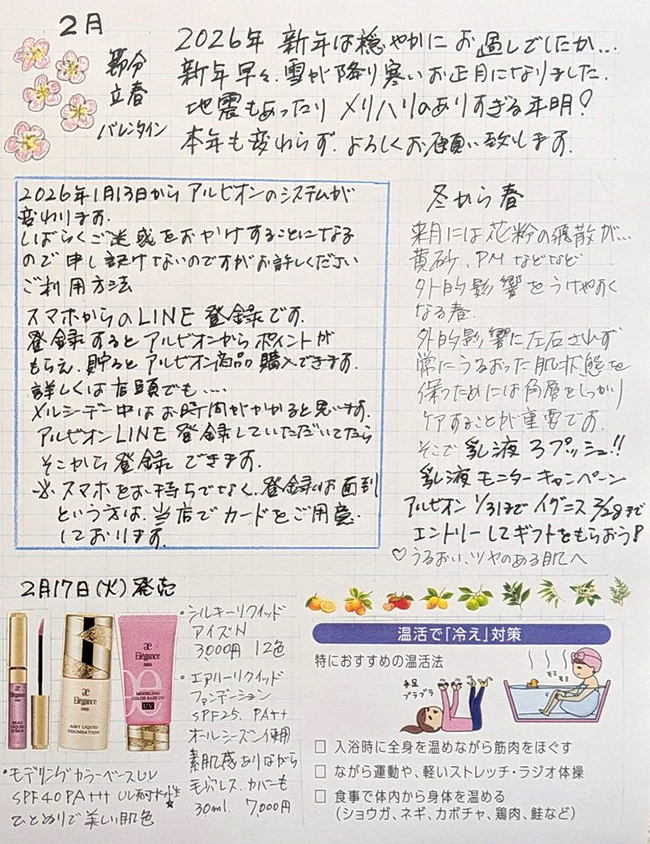 2月
節分
立春
バレンタイン
2026年 新年は穏やかにお過しでしたか…
新年早々、雪が降り寒いお正月になりました。
地震もあったり メリハリのありすぎる年明?
本年も変わらず、よろしくお願い致します。
2026年1月13日から アルビオンのシステムが
変わります。
しばらくご迷惑をおかけすることになる
ので申し訳けないのですがお許しください
ご利用方法
スマホからのLINE登録です。
登録するとアルビオンからポイントが
もらえ、貯るとアルビオン商品購入できます。
詳しくは店頭でも….
メルシーデー中はお時間がかかると思います。
アルビオンLINE登録していただいてたら
そこから登録できます。
※スマホをお持ちでなく、登録は面倒
という方は、当店でカードをご用意
しております。
冬から春
来月には花粉の飛散が…
黄砂、PMなどなど
外的影響をうけやすく
なる春。
外的影響に左右されず
常にうるおった肌状態を
保つためには角層をしっかり
ケアすることが重要です。
そこで 乳液3プッシュ!!
乳液モニターキャンペーン
アルビオン 1/31まで イグニス 2/28まで
エントリーしてギフトをもらおう!
♡うるおい、ツヤのある肌へ
2月17日(火)発売
æ
Elégance
PARIS
AIRY LIQUID
FOUNDATION
æ
Elégance
PARIS
MODELING
COLOR BASE UV
UV
・シルキーリクイッド
アイズN
3,000円 12色
・エアリーリクイッド
ファンデーション
SPF25. PA++
オールシーズン使用
素肌感ありながら
毛穴レス、カバーも
30ml 7,000円
・モデリングカラーベースUV
SPF40 PA+++ UV耐水性★
ひとぬりで美しい肌色
温活で「冷え」対策
特におすすめの温活法
手足
ブラブラ
モミ
モミ
□ 入浴時に全身を温めながら筋肉をほぐす
□ ながら運動や、軽いストレッチ・ラジオ体操
□ 食事で体内から身体を温める
(ショウガ、ネギ、カボチャ、鶏肉、鮭など)